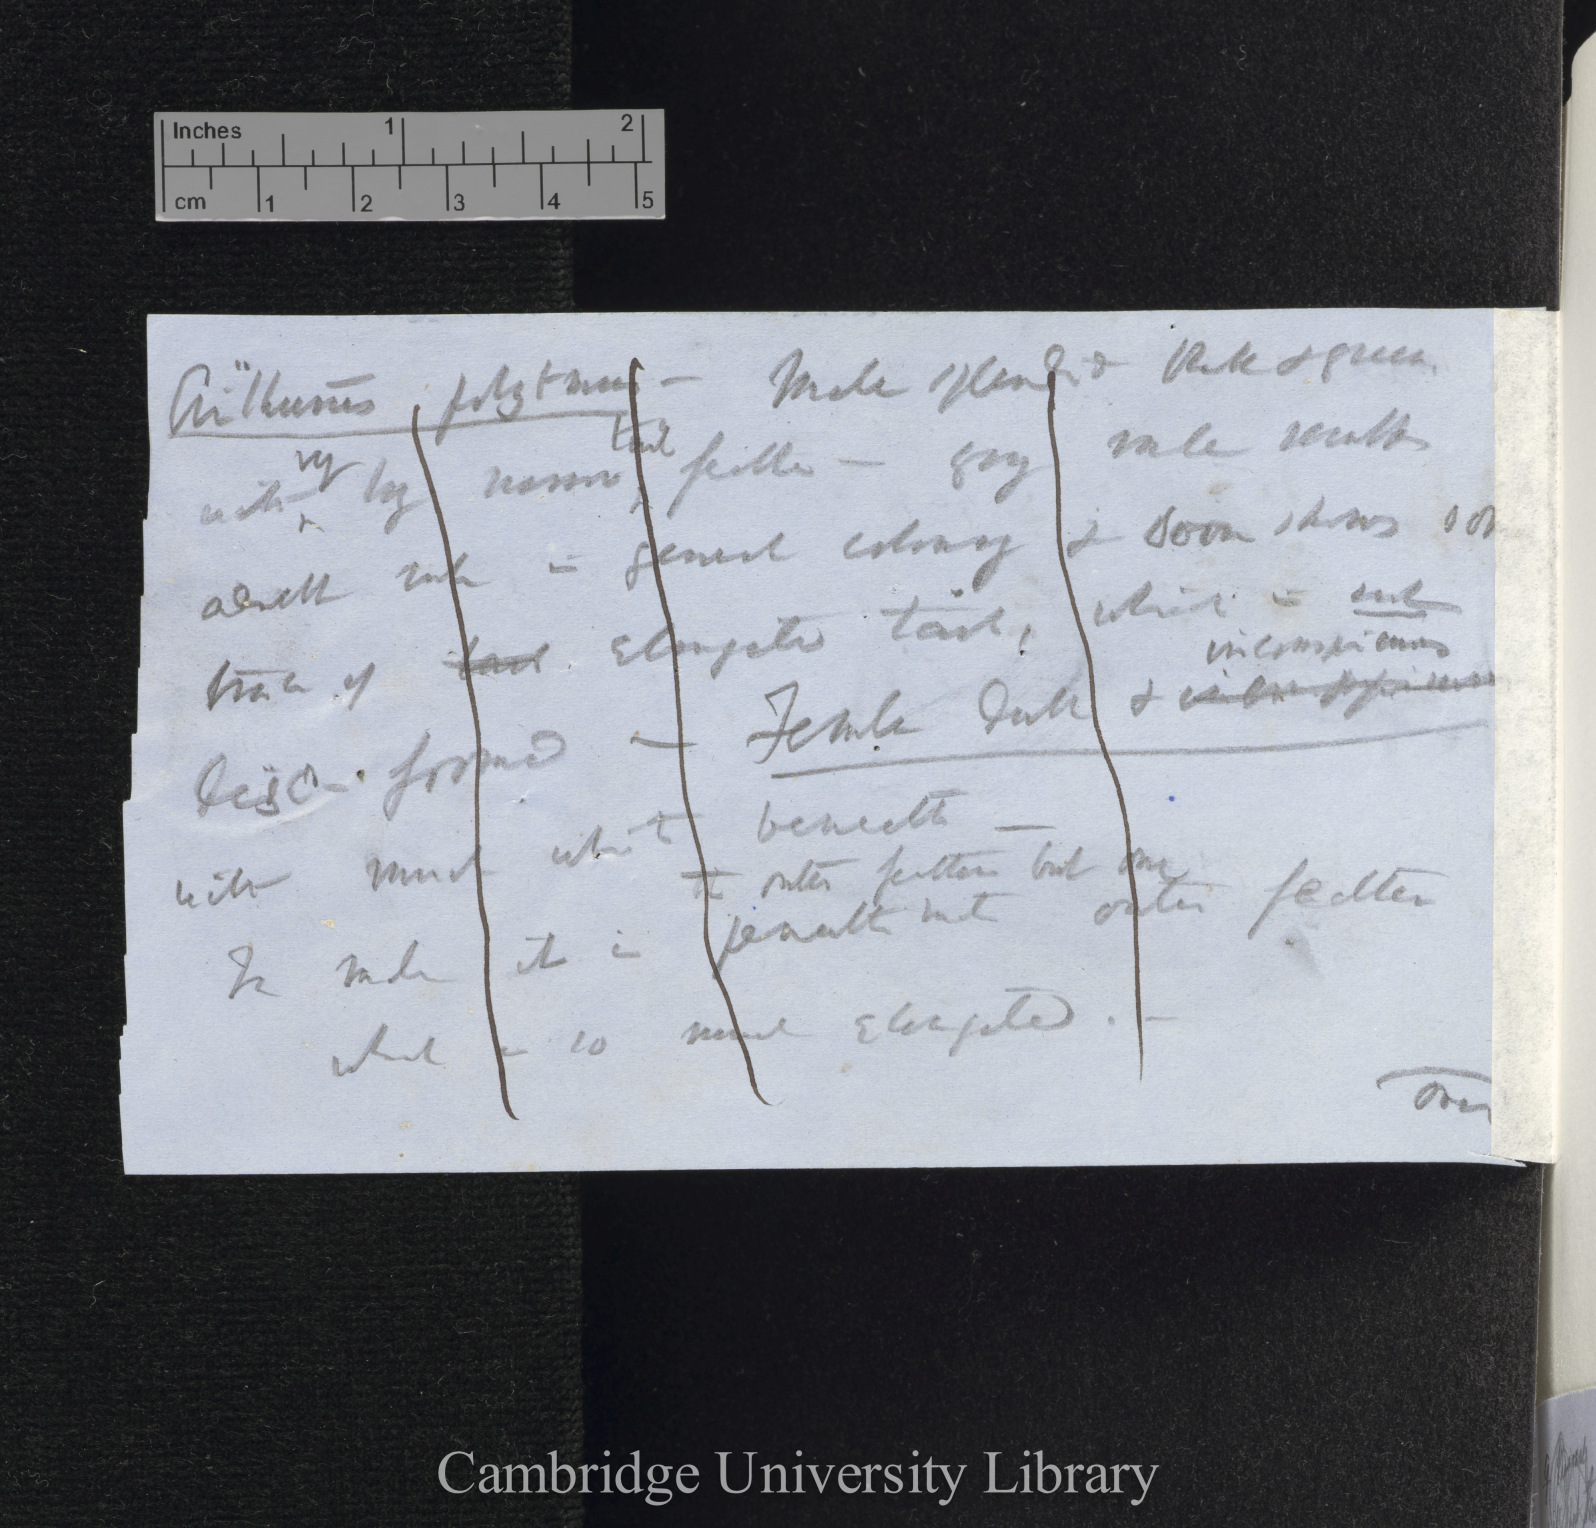 Inches 1 2
cm 1 2 3 4 5
Aithurus polytmus — Male splendid black & green
with very long narrow tail feather — young male resembles
adult male in general colouring & soon shows
trace of tail elongated tail, which is
formed — Female dark & inconspicuous
with much white beneath —
the outer feathers but one
In male it is penultimate outer feather
which is so much elongated. —
over
Cambridge University Library